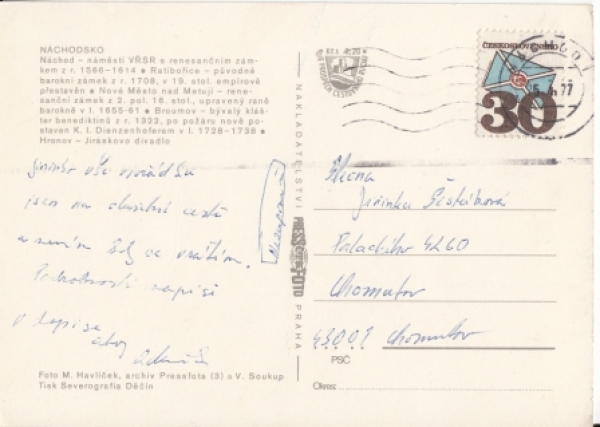 NÁCHODSKO
Náchod – náměstí VŘSR s renesančním zám-
kem z r. 1566–1614 • Ratibořice – původně
barokní zámek z r. 1708, v 19. stol. empírově
přestavěn • Nové Město nad Metují – rene-
sanční zámek z 2. pol. 16. stol., upravený raně
barokně v l. 1655-61 • Broumov – bývalý kláš-
ter benediktinů z r. 1322, po požáru nově po-
staven K. I. Dienzenhoferem v l. 1728–1738 •
Hronov – Jiráskovo divadlo
jsem na služební cestě
a nevím kdy se vrátím.
Podrobnosti napíši
v dopise
ahoj
Foto M. Havlíček, archiv Pressfota (3) a V. Soukup
Tisk Severografia Děčín
NAKLADATELSTVÍ
PRESSFOTO
PRAHA
ČESKOSLOVENSKO
30
NÁCHOD 1
77
Slečna
Jiřinka
Palackého 4260
Chomutov
43001 Chomutov
PSČ
Okres: